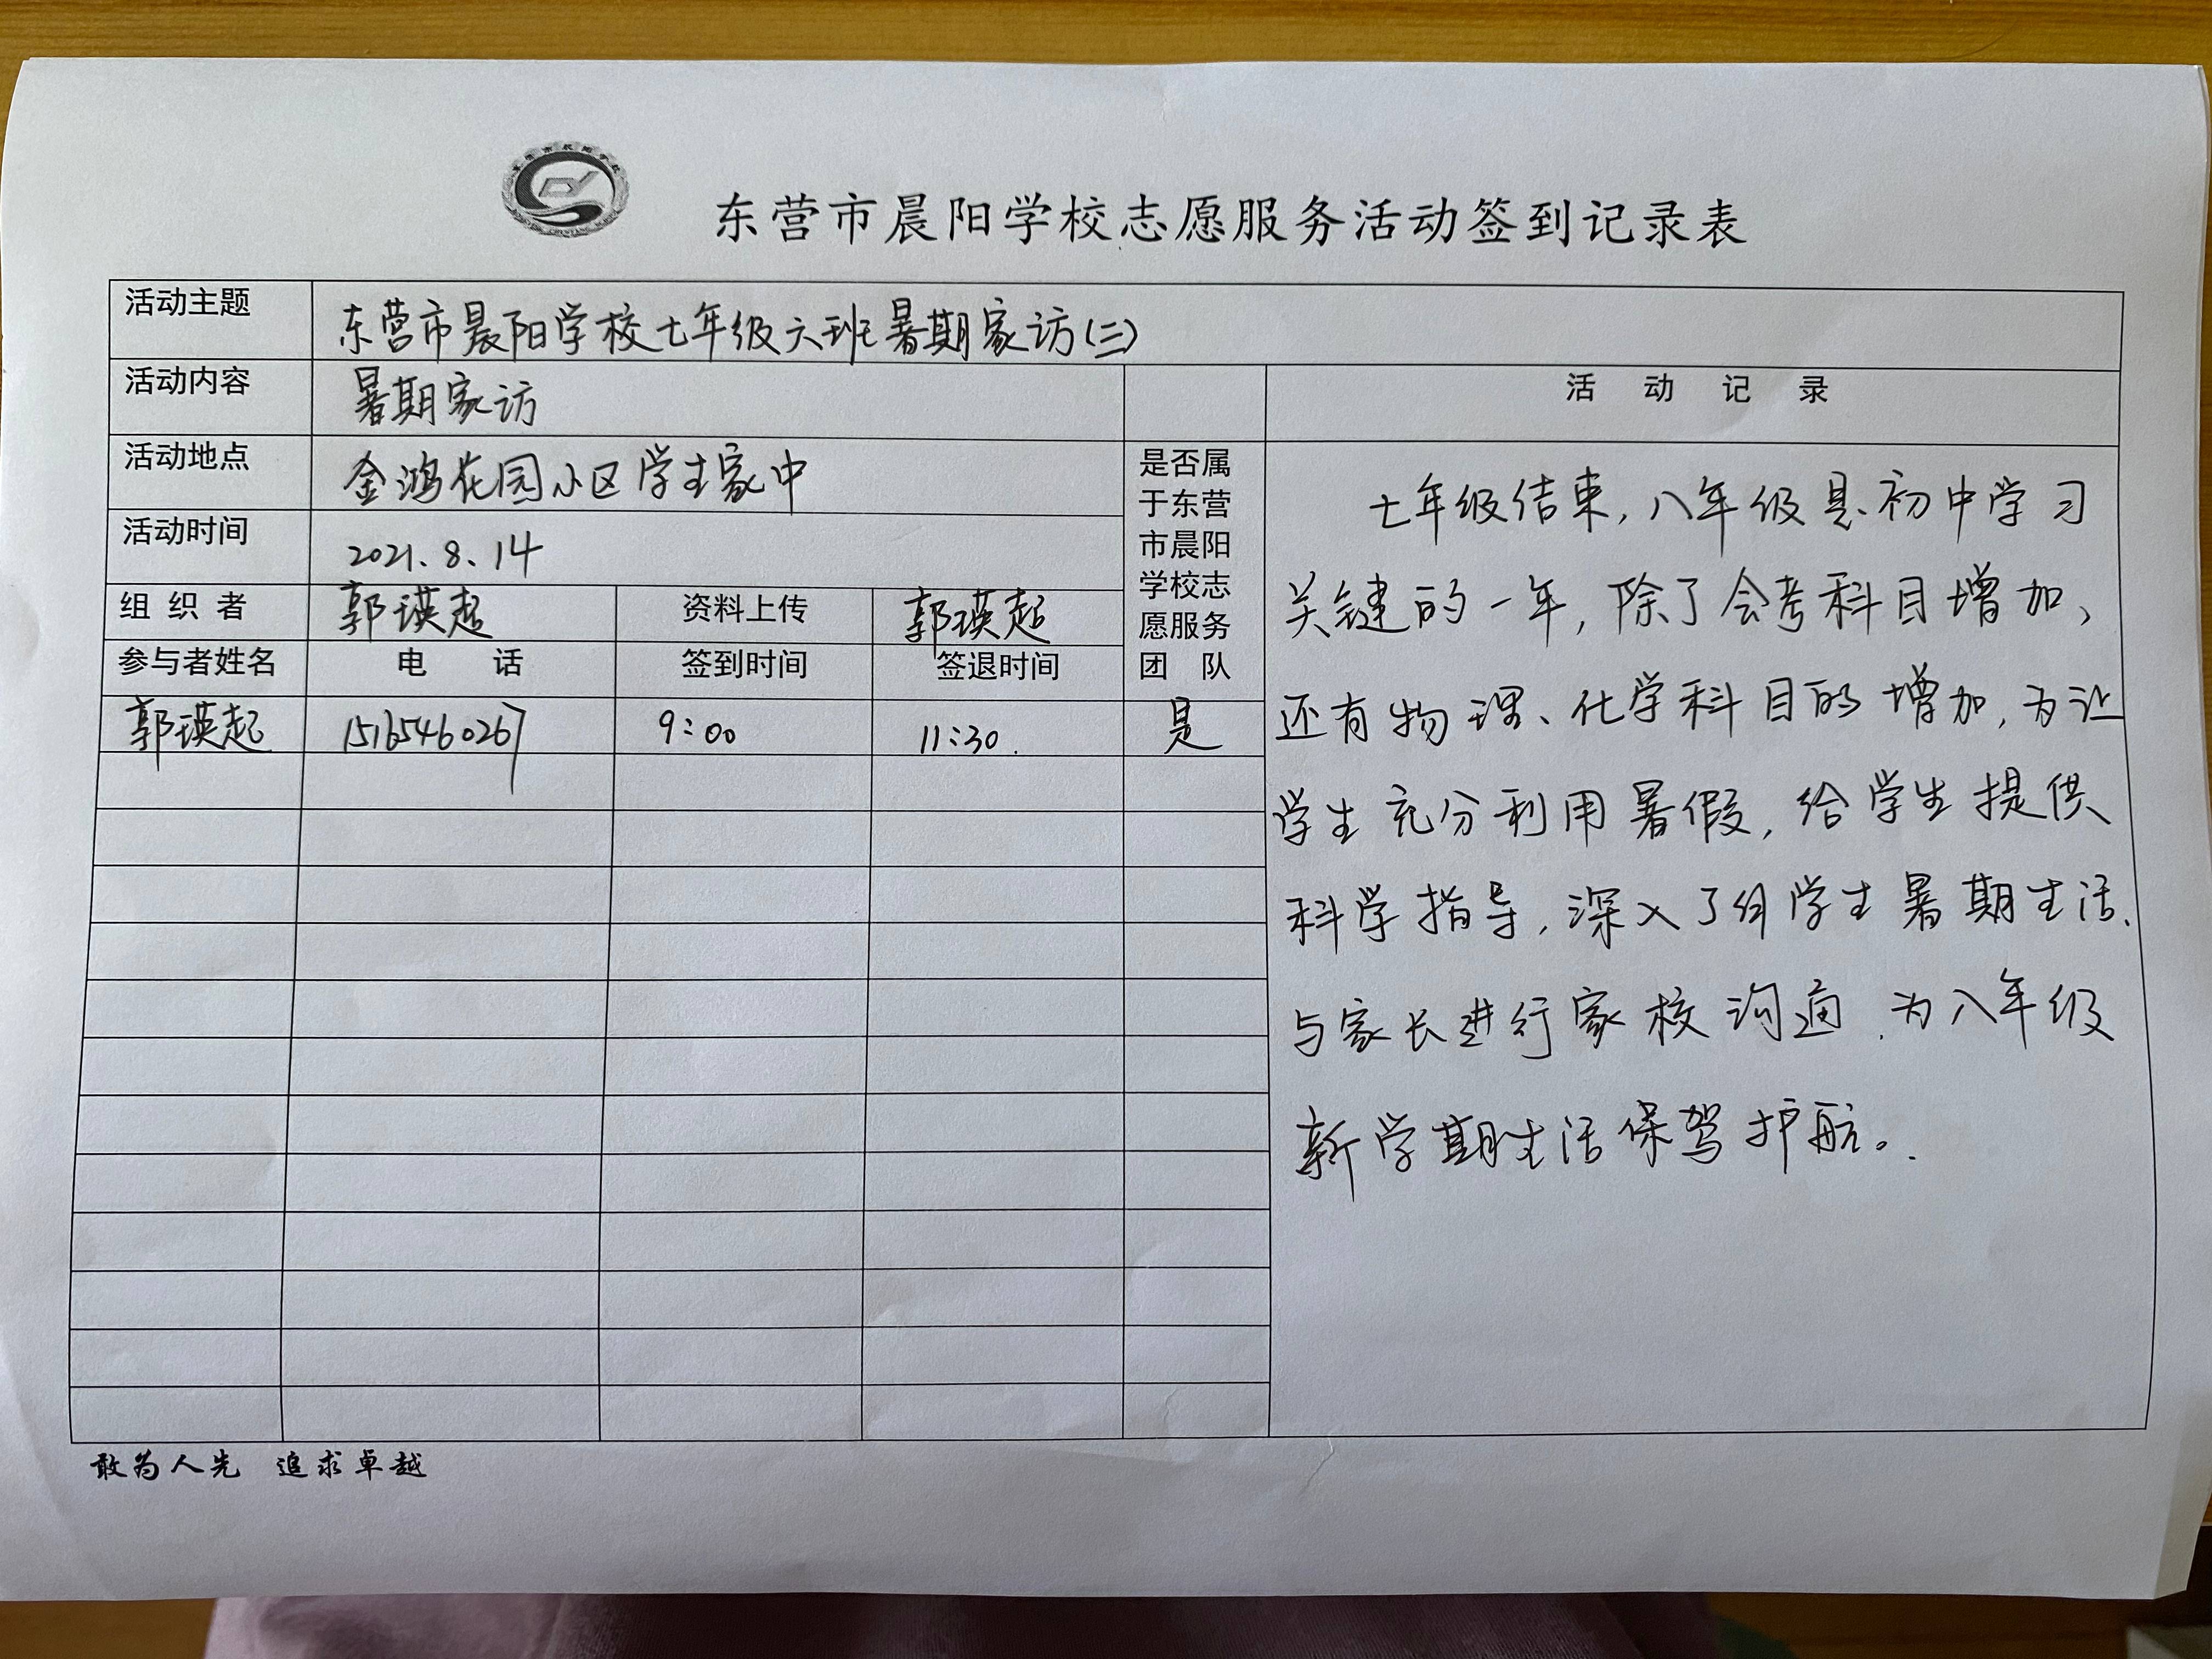 东营市晨阳学校志愿服务活动签到记录表
活动主题 东营市晨阳学校七年级六班暑期家访(三)
活动内容 暑期家访
活动地点 金鸿花园小区学生家中
活动时间 2021.8.14
组织者 郭瑛起 资料上传 郭瑛起
参与者姓名 电话 签到时间 签退时间
郭瑛起 15165460267 9:00 11:30. 是
是否属
于东营
市晨阳
学校志
愿服务
团队
活动记录
七年级结束,八年级是初中学习
关键的一年,除了会考科目增加、
还有物理、化学科目的增加,为让
学生充分利用暑假,给学生提供
科学指导,深入了解学生暑期生活、
与家长进行家校沟通、为八年级
新学期生活保驾护航。
敢为人先 追求卓越